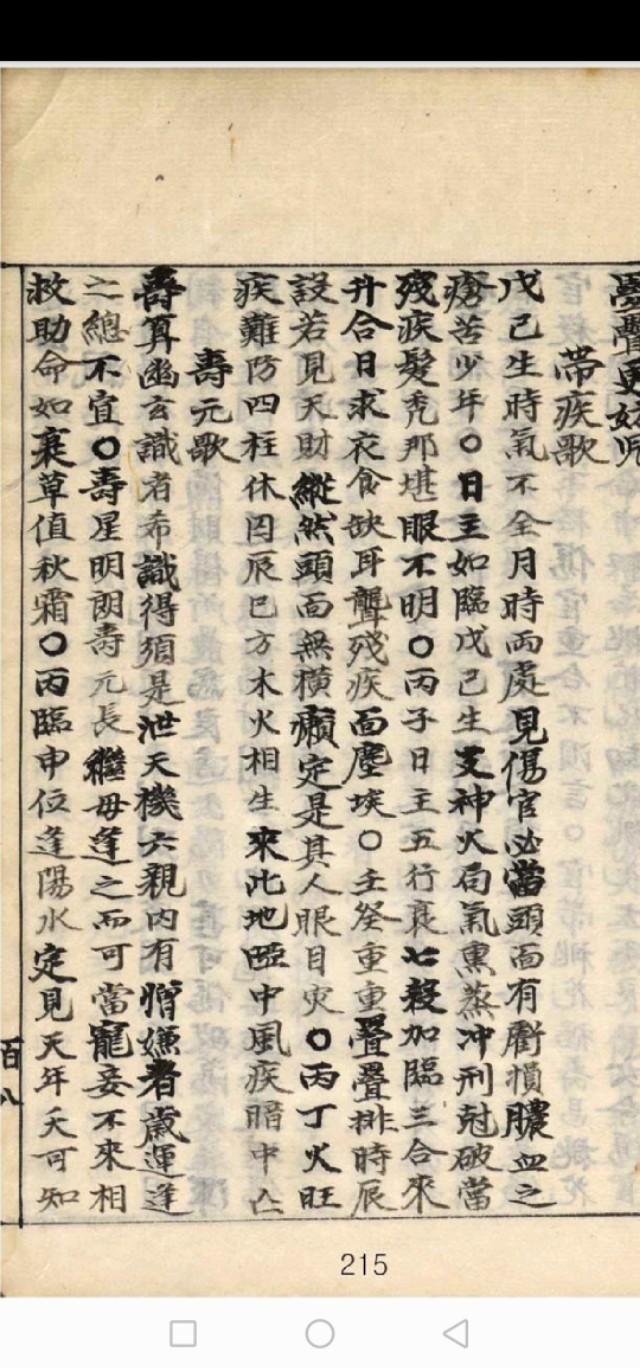 疊更妨兒
帶疾歌
戊己生時氣不全月時兩處見傷官必當頭面有虧損膿血之
瘡苦少年○日主如臨戊己生支神火局氣熏蒸冲刑尅破當
殘疾髮禿那堪眼不明○丙子日主五行衰七殺加臨三合來
升合日求衣食缺耳聾殘疾面塵埃○壬癸重重疊疊排時辰
設若見天財縱然頭面無橫癩定是其人眼目灾○丙丁火旺
疾難防四柱休囚辰巳方木火相生來此地啞中風疾暗中亡
壽元歌
壽算幽玄識者希識得須是泄天機六親內有憎嫌者歲運逢
之總不宜○壽星明朗壽元長繼母逢之而可當寵妾不來相
救助命如衰草值秋霜○丙臨申位逢陽水定見天年夭可知
百八
215